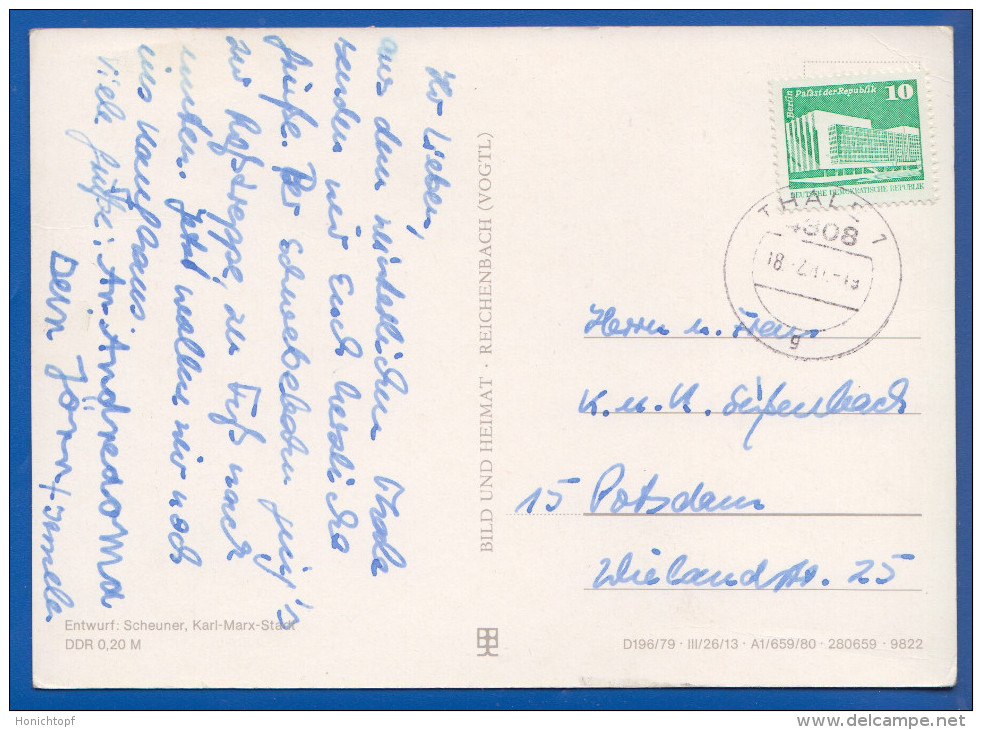 Ihr Lieben,
aus dem winterlichen Thale
senden wir Euch herzliche
Grüße. Per Schwebebahn ging's
zur Roßtrappe, zu Fuß nach
unten. Jetzt wollen wir noch
ins Kaufhaus
Viele Grüße: An Andrea Oma
Dein Jörn +
BILD UND HEIMAT · REICHENBACH (VOGTL)
Berlin Palast der Republik 10
DEUTSCHE DEMOKRATISCHE REPUBLIK
THALE 1
4308
g
Herrn u. Frau
K. u. H. Seifenbach
15 Potsdam
Wielandstr. 25
Entwurf: Scheuner, Karl-Marx-Stadt
DDR 0,20 M
D196/79 · III/26/13 · A1/659/80 · 280659 · 9822
Honichtopf
www.delcampe.net